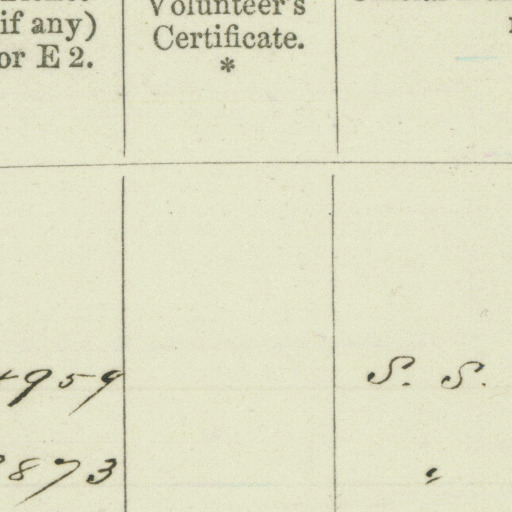 if any)
or E 2.
Volunteer's
Certificate.
*
4959 S. S.
873 "